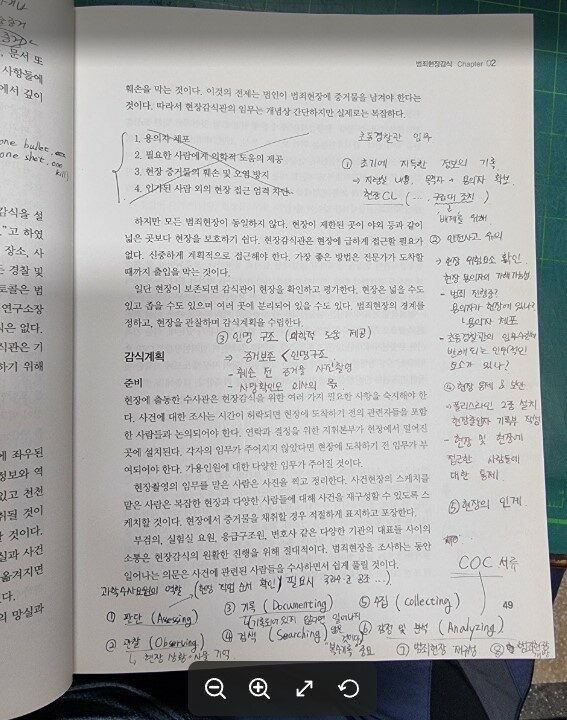 범죄현장감식 Chapter 02
훼손을 막는 것이다. 이것의 전제는 범인이 범죄현장에 증거물을 남겨야 한다는
것이다. 따라서 현장감식관의 임무는 개념상 간단하지만 실제로는 복잡하다.
1. 용의자 체포
2. 필요한 사람에게 의학적 도움의 제공
3. 현장 증거물의 훼손 및 오염 방지
4. 인가된 사람 외의 현장 접근 엄격 차단
초동경찰관 임무
① 초기에 지득한 정보의 기록
현장CL
배제를 위해
② 안전사고 유의
→ 현장 위험요소 확인
- 범죄 진행중?
용의자가 현장에 있나?
용의자 체포
요소가 있나?
④ 현장 통제 & 보안
→ 폴리스라인 2중 설치
현장출입자 기록부 작성
- 현장 및 현장에
접근한 사람들에
대한 통제
⑤ 현장의 인계
하지만 모든 범죄현장이 동일하지 않다. 현장이 제한된 곳이 야외 등과 같이
넓은 곳보다 현장을 보호하기 쉽다. 현장감식관은 현장에 급하게 접근할 필요가
없다. 신중하게 계획적으로 접근해야 한다. 가장 좋은 방법은 전문가가 도착할
때까지 출입을 막는 것이다.
일단 현장이 보존되면 감식관이 현장을 확인하고 평가한다. 현장은 넓을 수도
있고 좁을 수도 있으며 여러 곳에 분리되어 있을 수도 있다. 범죄현장의 경계를
정하고, 현장을 관찰하며 감식계획을 수립한다.
③ 인명 구조 (의학적 도움 제공)
⇒ 증거보존 < 인명구조
- 훼손 전 증거물 사진촬영
- 사망확인도 의사의 몫
감식계획
준비
현장에 출동한 수사관은 현장감식을 위한 여러 가지 필요한 사항을 숙지해야 한
다. 사건에 대한 조사는 시간이 허락되면 현장에 도착하기 전의 관련자들을 포함
한 사람들과 논의되어야 한다. 연락과 결정을 위한 지휘본부가 현장에서 떨어진
곳에 설치된다. 각자의 임무가 주어지지 않았다면 현장에 도착하기 전 임무가 부
여되어야 한다. 가용인원에 대한 다양한 임무가 주어질 것이다.
현장촬영의 임무를 맡은 사람은 사진을 찍고 정리한다. 사건현장의 스케치를
맡은 사람은 복잡한 현장과 다양한 사람들에 대해 사건을 재구성할 수 있도록 스
케치할 것이다. 현장에서 증거물을 채취할 경우 적절하게 표지하고 포장한다.
부검의, 실험실 요원, 응급구조원, 변호사 같은 다양한 기관의 대표들 사이의
소통은 현장감식의 원활한 진행을 위해 절대적이다. 범죄현장을 조사하는 동안
일어나는 의문은 사건에 관련된 사람들을 수사하면서 쉽게 풀릴 것이다.
COC 서류
49
과학수사요원의 역할
① 판단 (Assessing)
② 관찰 (Observing)
③ 기록 (Documenting)
④ 검색 (Searching)
⑤ 수집 (Collecting)
⑥ 감정 및 분석 (Analyzing)
⑦ 범죄현장 재구성
one bullet
one shot, one
kill
문서 또
사항들에
에서 깊이
감식을 설
고 하였
장소, 사
는 경찰 및
토콜은 범
연구소장
식은 없다.
식관은 기
하기 위해
에 좌우된
정보와 역
있고 천천
취될 것이
할 것이다.
실과 사건
옮겨지면
의 망실과